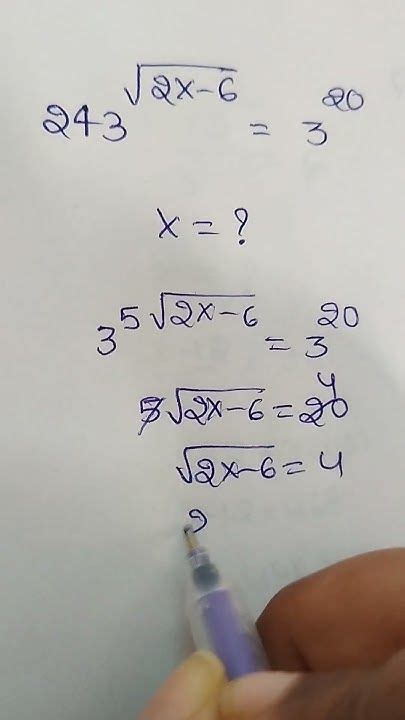 243^√(2x-6) = 3^20
x = ?
3^5√(2x-6) = 3^20
5√(2x-6) = 20 4
√(2x-6) = 4
2